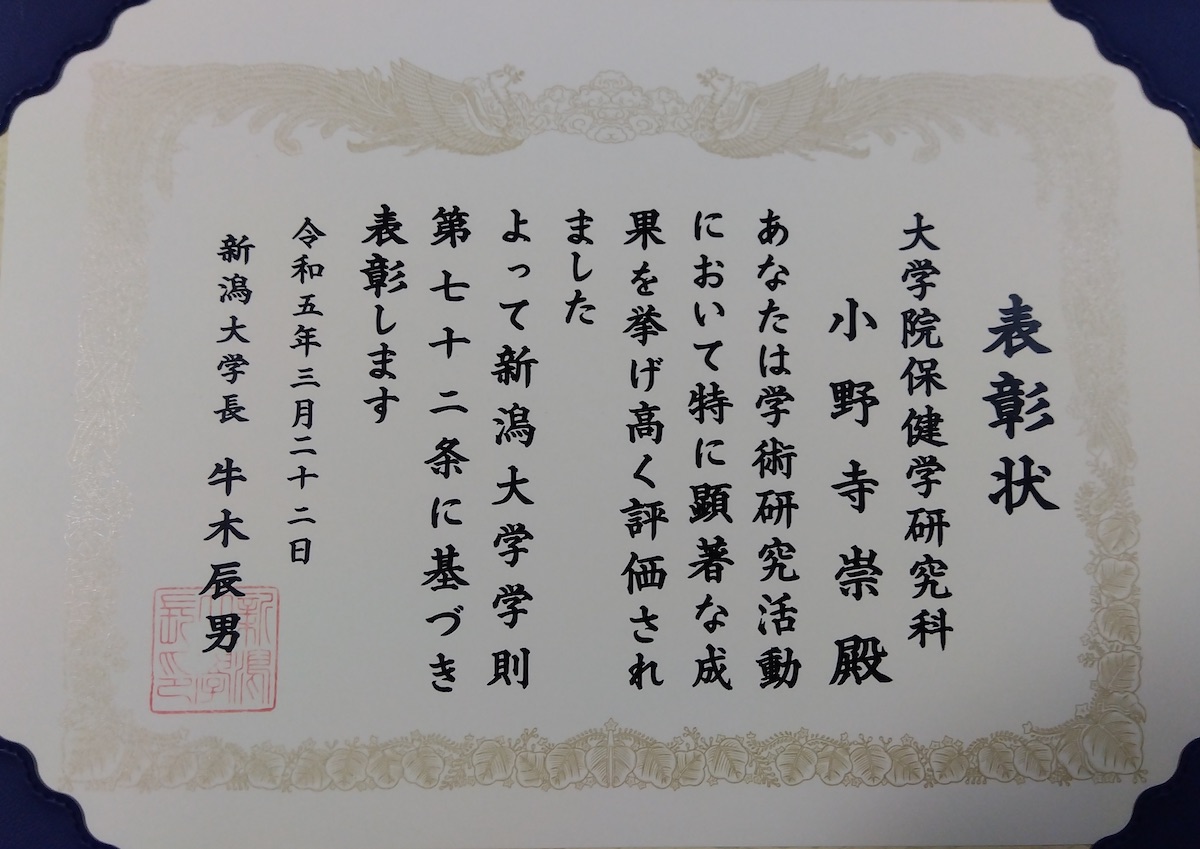 表彰状
大学院保健学研究科
小野寺崇殿
あなたは学術研究活動
において特に顕著な成
果を挙げ高く評価され
ました
よって新潟大学学則
第七十二条に基づき
表彰します
令和五年三月二十二日
新潟大学長 牛木辰男
新潟
大学
長印